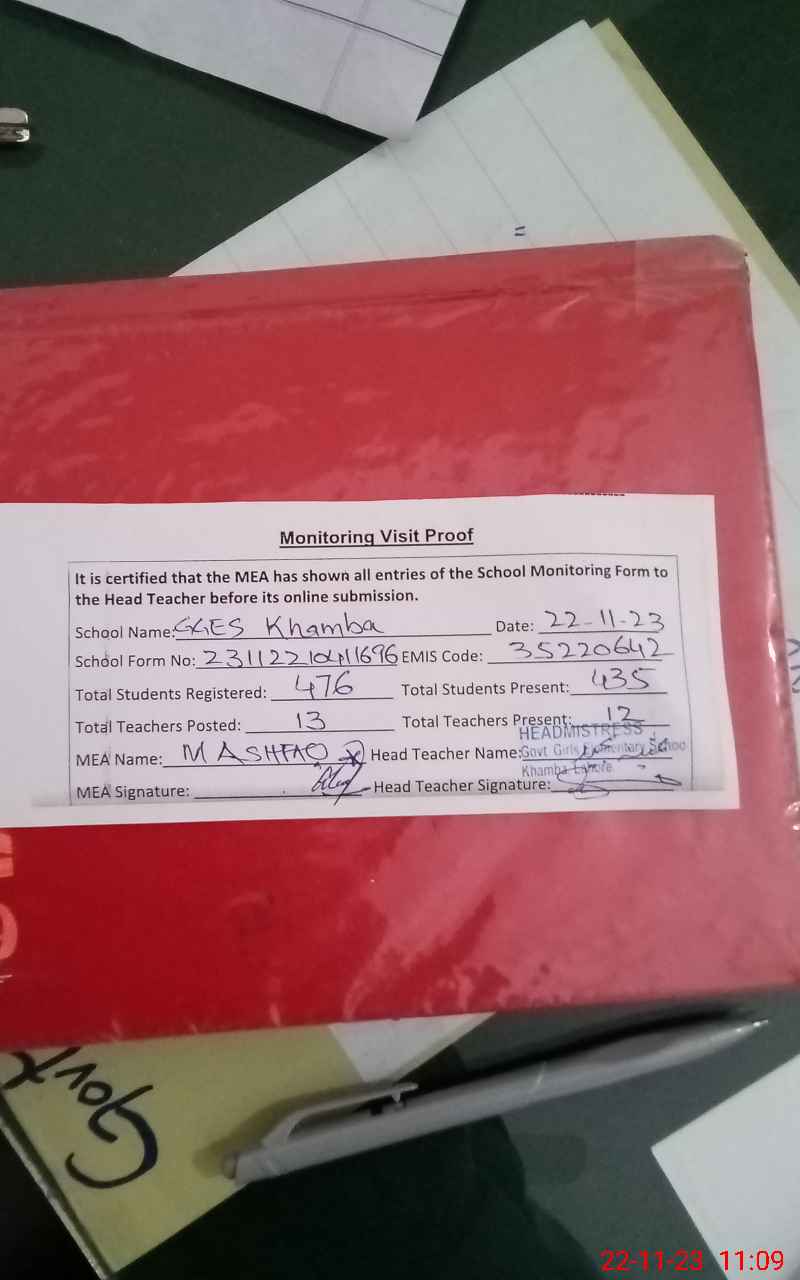 Monitoring Visit Proof
It is certified that the MEA has shown all entries of the School Monitoring Form to
the Head Teacher before its online submission.
School Name: GGES Khamba Date: 22-11-23
School Form No: EMIS Code: 35220642
Total Students Registered: 476 Total Students Present: 435
Total Teachers Posted: 13 Total Teachers Present: 12
HEADMISTRESS
MEA Name: M ASHFAQ Head Teacher Name: Govt. Girls Elementary School
Khamba Lahore
MEA Signature: Head Teacher Signature:
Govt
22-11-23 11:09